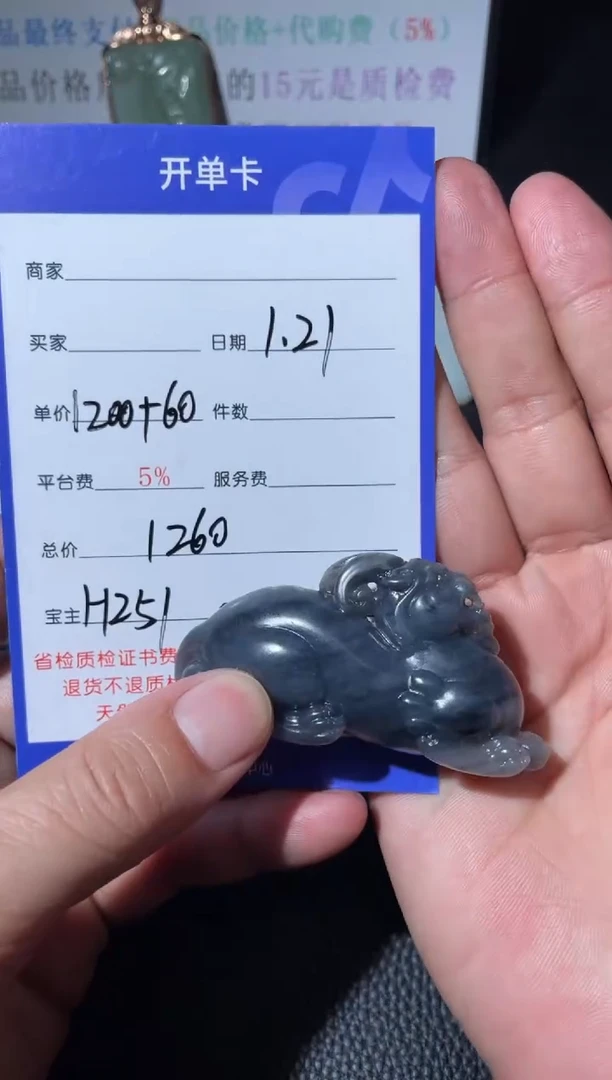 品最终支付 品价格+代购费（5%）
品价格 的15元是质检费
开单卡
商家
买家 日期 1.21
单价 1200+60 件数
平台费 5% 服务费
总价 1260
宝主 H251
省检质检证书费
退货不退质
中心